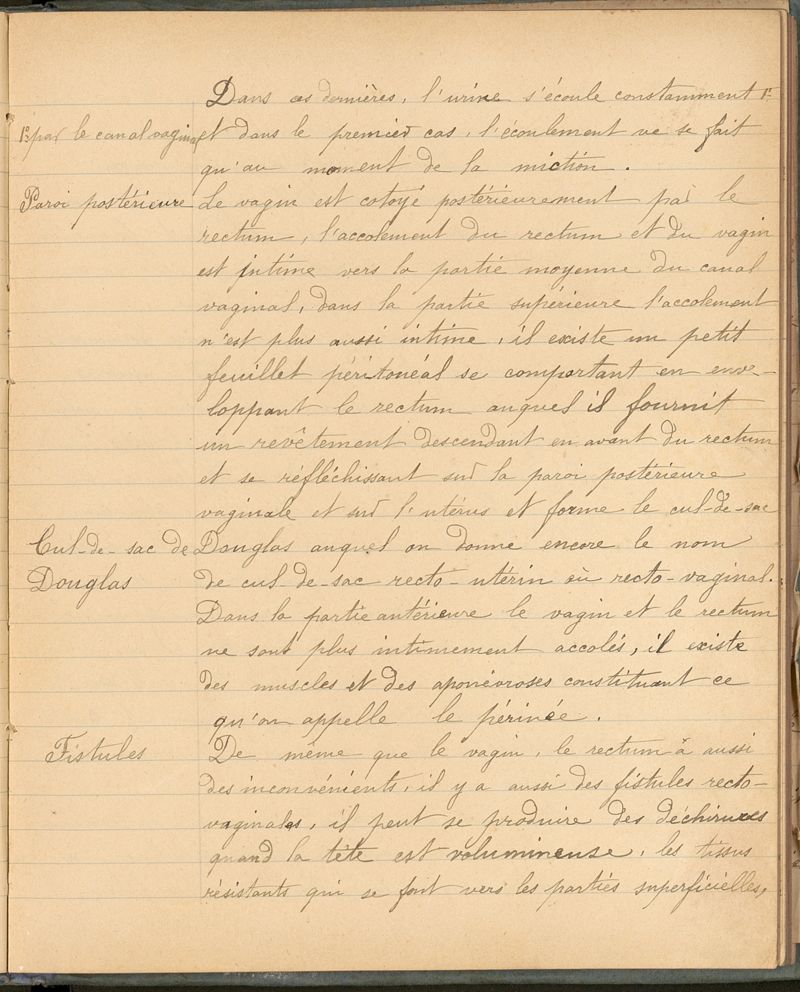 Dans ces dernières, l'urine s'écoule constamment 1º
1º par le canal vaginal
et dans le premier cas, l'écoulement ne se fait
qu'au moment de la miction.
Paroi postérieure
Le vagin est cotoyé postérieurement par le
rectum, l'accolement du rectum et du vagin
est intime vers la partie moyenne du canal
vaginal, dans la partie supérieure l'accolement
n'est plus aussi intime, il existe un petit
feuillet péritonéal se comportant en enve-
loppant le rectum auquel il fournit
un revêtement descendant en avant du rectum
et se réfléchissant sur la paroi postérieure
vaginale et sur l'utérus et forme le cul-de-sac
Cul-de-sac de
Douglas
Douglas auquel on donne encore le nom
de cul-de-sac recto-utérin où recto-vaginal.
Dans la partie antérieure le vagin et le rectum
ne sont plus intimement accolés, il existe
des muscles et des aponévroses constituant ce
qu'on appelle le périnée.
Fistules
De même que le vagin, le rectum à aussi
des inconvénients, il y a aussi des fistules recto-
vaginales, il peut se produire des déchirures
quand la tête est volumineuse, les tissus
résistants qui se font vers les parties superficielles,